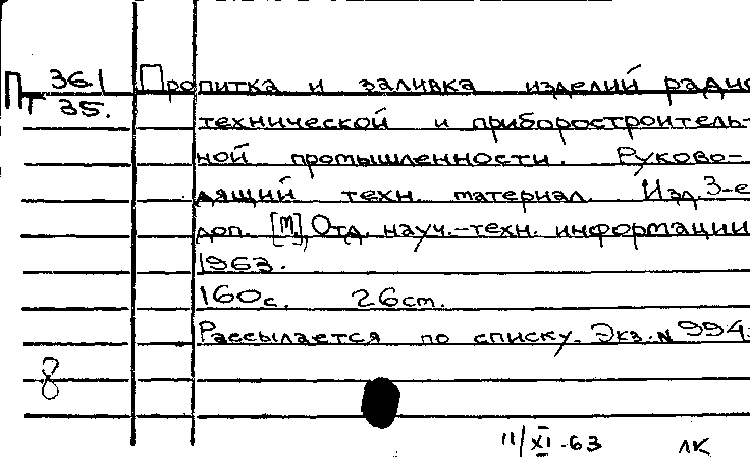 Пт 36.1
35.
Пропитка и заливка изделий радио
технической и приборостроитель-
ной промышленности. Руково-
дящий техн. материал. Изд. 3-е
доп. [М.], Отд. науч.-техн. информации
1963.
160с. 26cm.
Рассылается по списку. Экз. N 994.
8
11/XI-63 ЛК